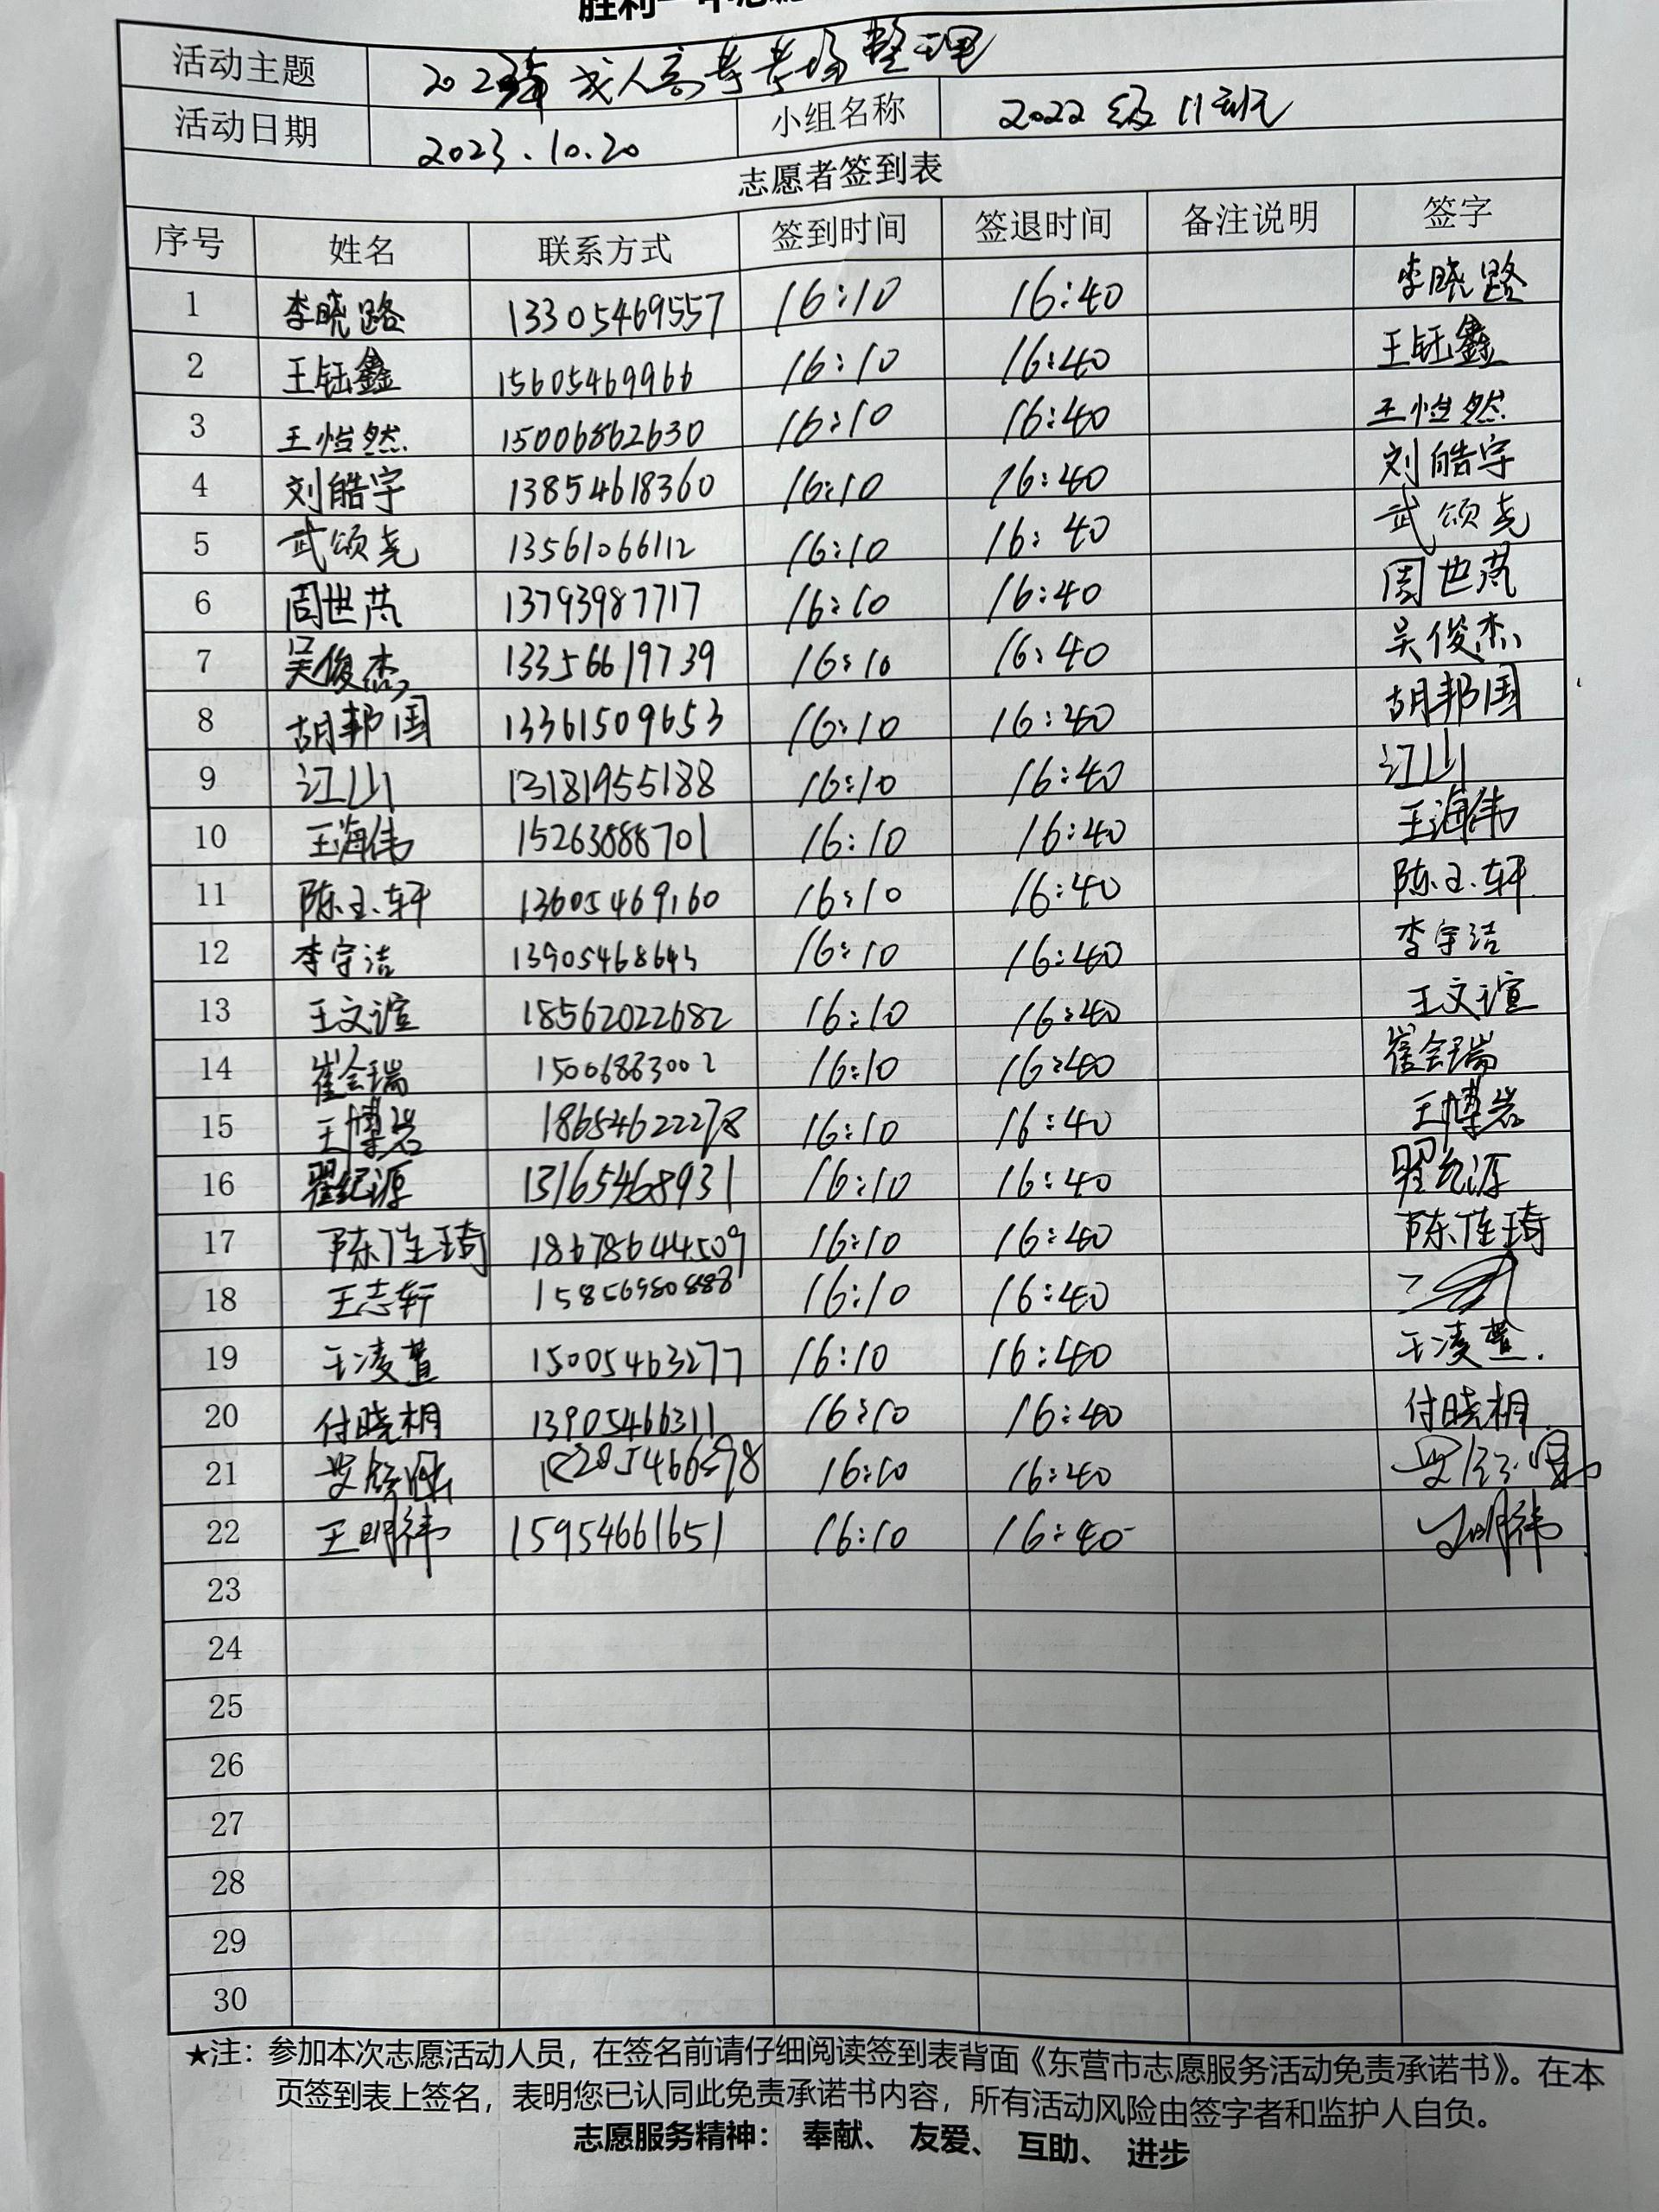 胜利一中志愿
活动主题 2023年成人高等考场整理
活动日期 2023.10.20 小组名称 2022级11班
志愿者签到表
序号 姓名 联系方式 签到时间 签退时间 备注说明 签字
1 李晓璐 13305469557 16:10 16:40 李晓璐
2 王钰鑫 15605469966 16:10 16:40 王钰鑫
3 王怡然 15006862630 16:10 16:40 王怡然
4 刘皓宇 13854618360 16:10 16:40 刘皓宇
5 武颂尧 13561066112 16:10 16:40 武颂尧
6 周世 13793987717 16:10 16:40 周世
7 吴俊杰 13356619739 16:10 16:40 吴俊杰
8 胡邦国 13361509653 16:10 16:40 胡邦国
9 江山 13181955188 16:10 16:40 江山
10 王海伟 15263888701 16:10 16:40 王海伟
11 陈玉轩 13605469160 16:10 16:40 陈玉轩
12 李宇洁 13905468643 16:10 16:40 李宇洁
13 王文谊 18562022682 16:10 16:40 王文谊
14 崔金瑞 15006863002 16:10 16:40 崔金瑞
15 王博岩 18654622278 16:10 16:40 王博岩
16 翟纪源 13165468931 16:10 16:40 翟纪源
17 陈佳琦 18678644509 16:10 16:40 陈佳琦
18 王志轩 15856980888 16:10 16:40
19 王凌萱 15005463277 16:10 16:40 王凌萱
20 付晓桐 13905466311 16:10 16:40 付晓桐
21 16:10 16:40
22 王明祎 15954661651 16:10 16:40 王明祎
23
24
25
26
27
28
29
30
★注：参加本次志愿活动人员，在签名前请仔细阅读签到表背面《东营市志愿服务活动免责承诺书》。在本
页签到表上签名，表明您已认同此免责承诺书内容，所有活动风险由签字者和监护人自负。
志愿服务精神： 奉献、 友爱、 互助、 进步